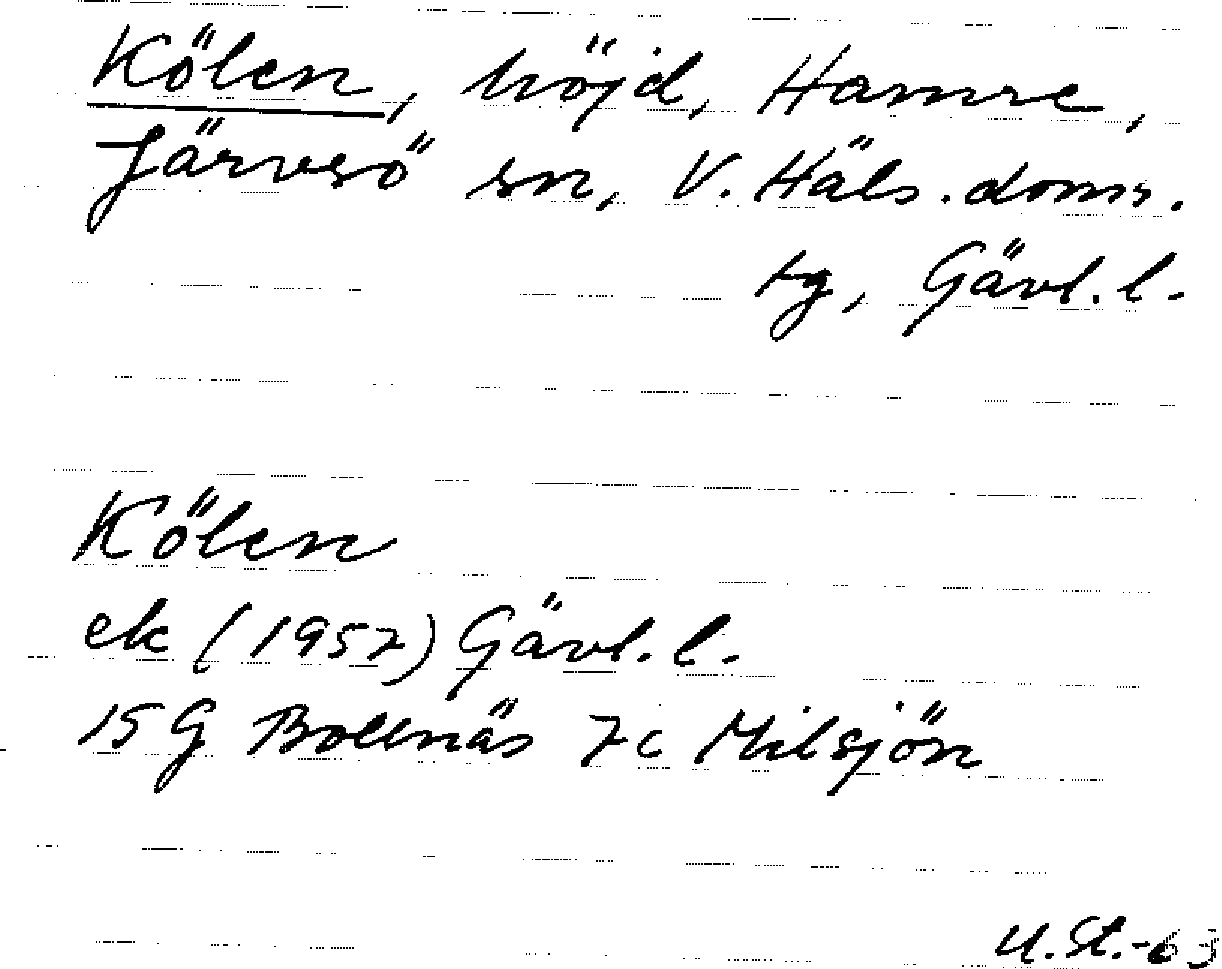 Kölen, höjd, Hamre,
Järvsö sn, V. Häls. doms.
tg, Gävl. l.
Kölen
ek (1957) Gävl. l.
15G Bollnäs 7c Milsjön
U. St. -63